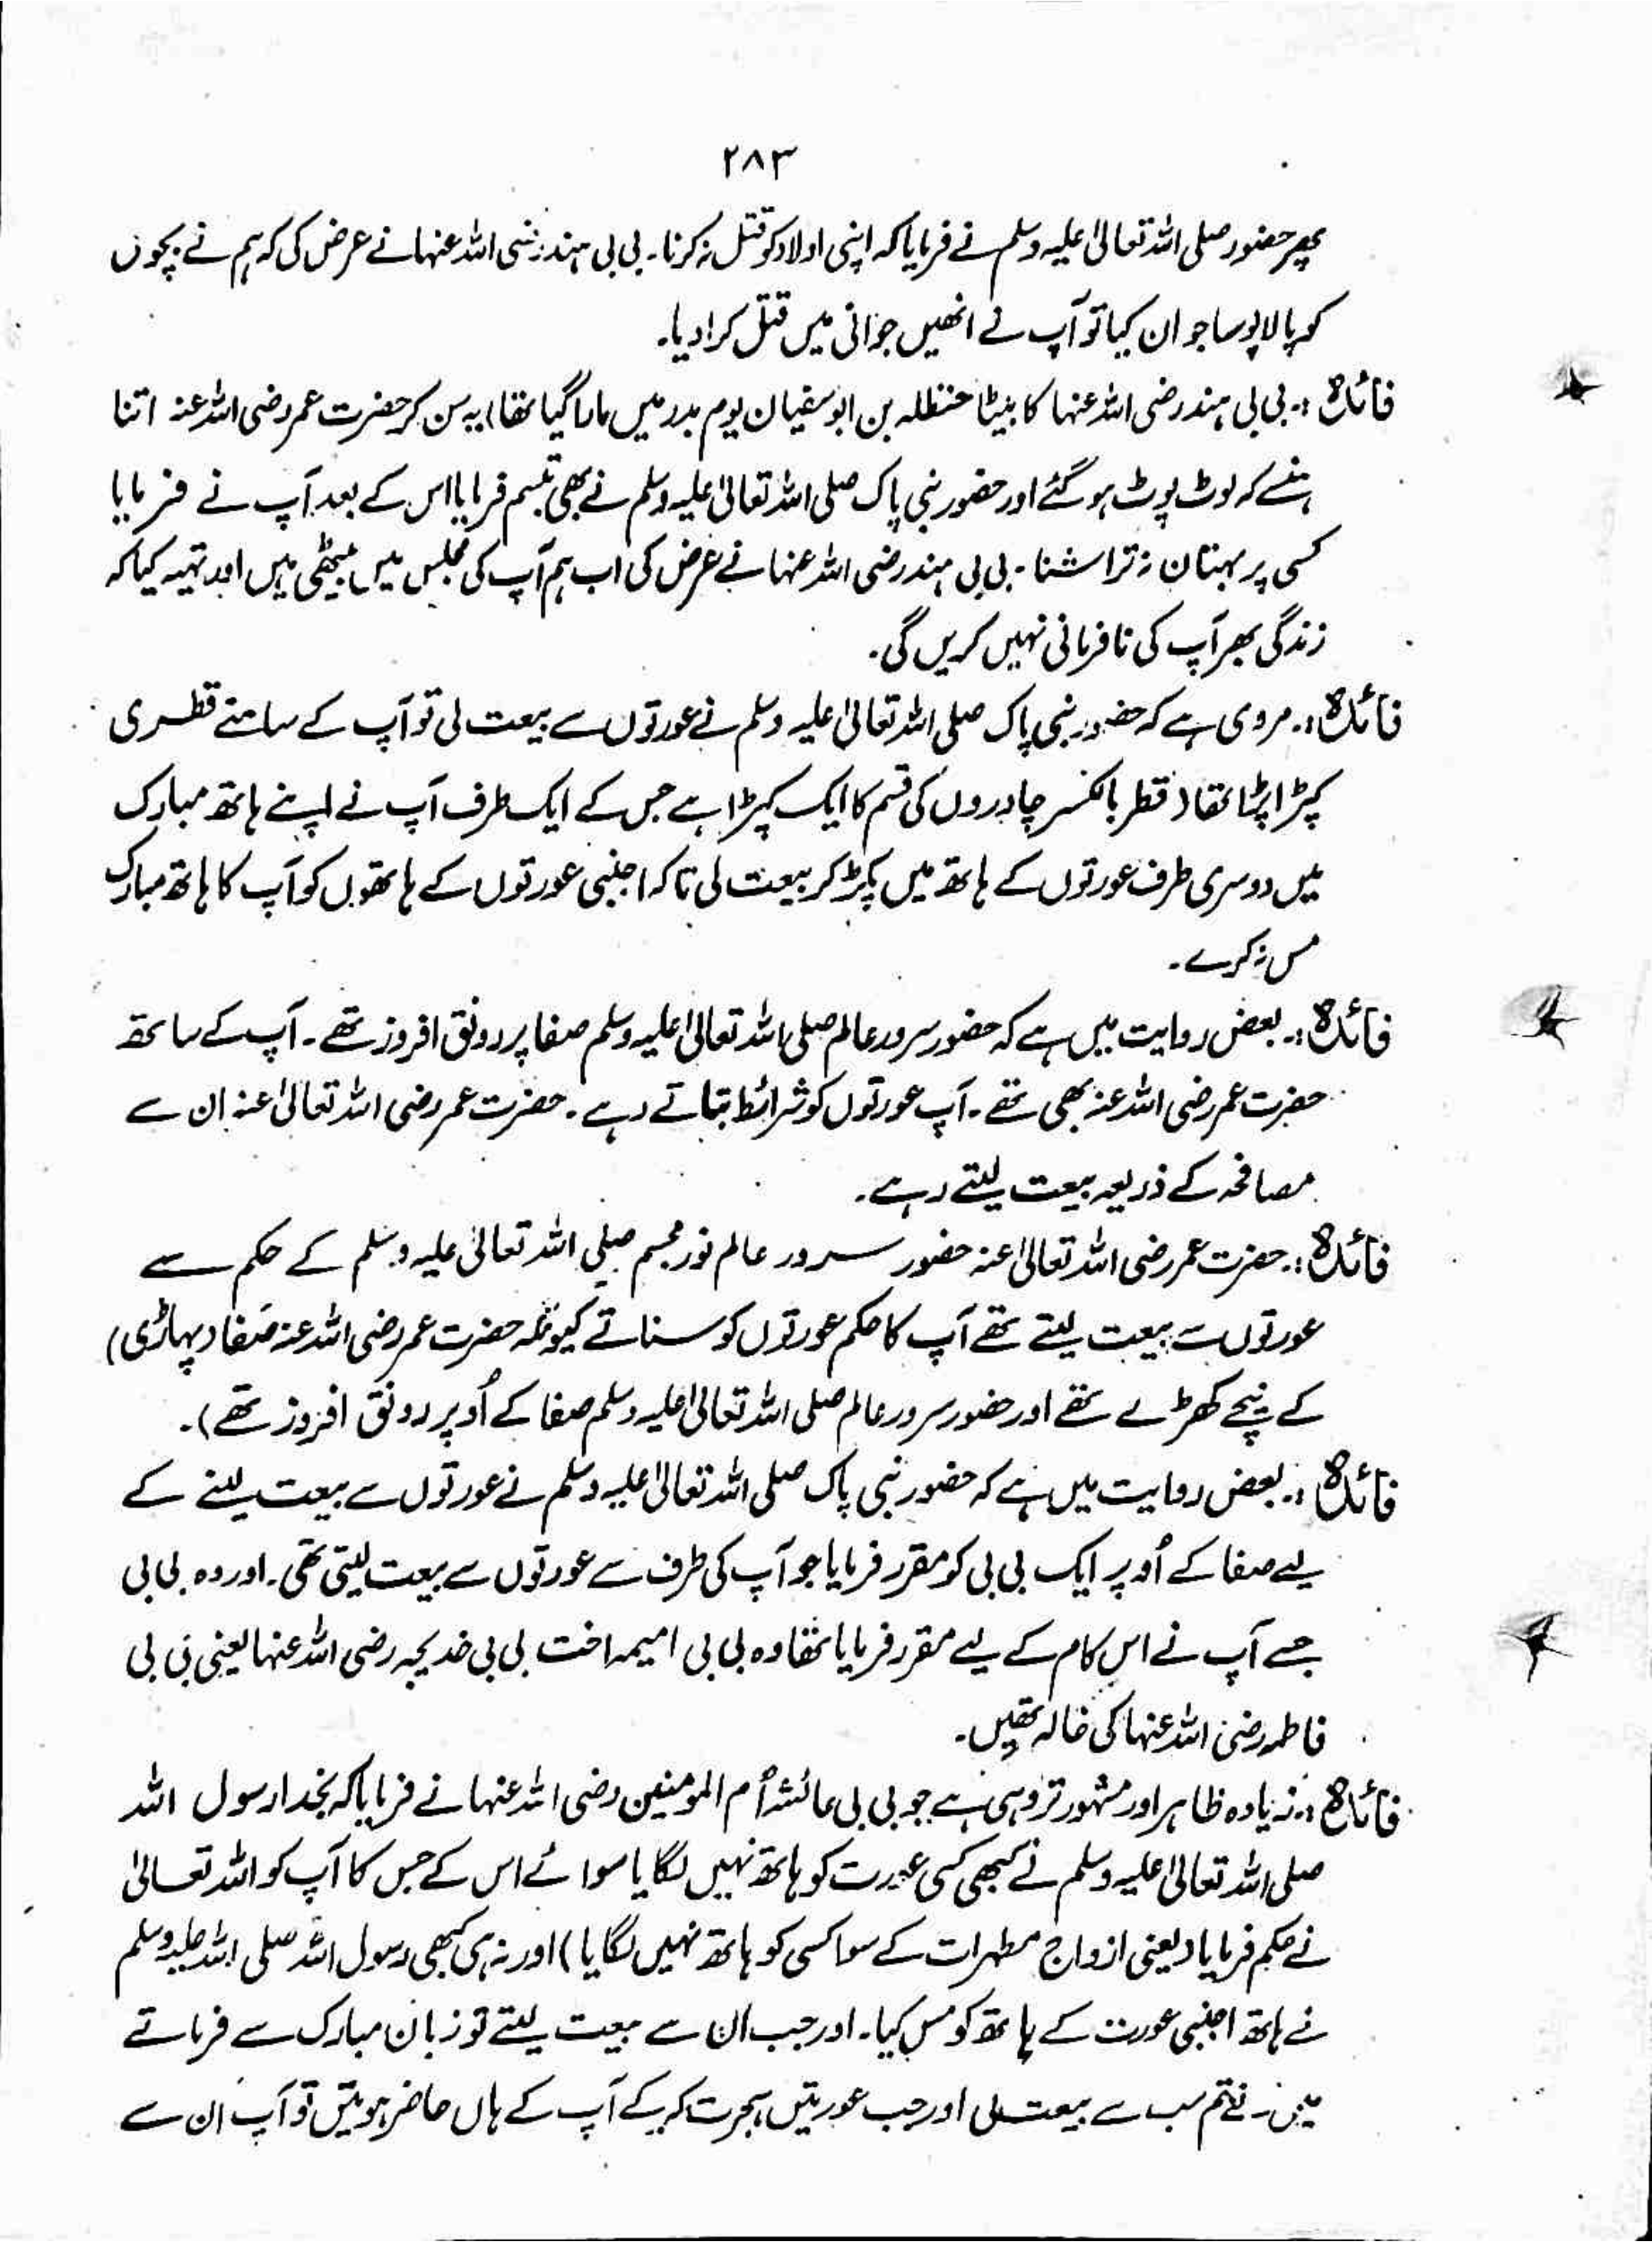 ۲۸۳
پھر حضور صلی اللہ تعالیٰ علیہ وسلم نے فرمایا کہ اپنی اولاد کو قتل نہ کرنا۔ بی بی ہند رضی اللہ عنہا نے عرض کی کہ ہم نے بچوں
کو پالا پوسا جوان کیا تو آپ نے انھیں جوانی میں قتل کرا دیا۔
فائدہ :۔ بی بی ہند رضی اللہ عنہا کا بیٹا حنظلہ بن ابو سفیان یوم بدر میں مارا گیا تھا) یہ سن کر حضرت عمر رضی اللہ عنہ اتنا
ہنسے کہ لوٹ پوٹ ہو گئے اور حضور نبی پاک صلی اللہ تعالیٰ علیہ وسلم نے بھی تبسم فرمایا اس کے بعد آپ نے فرمایا
کسی پر بہتان نہ تراشنا ۔ بی بی ہند رضی اللہ عنہا نے عرض کی اب ہم آپ کی مجلس میں بیٹھی ہیں اور تہیہ کیا کہ
زندگی بھر آپ کی نافرمانی نہیں کریں گی۔
فائدہ :۔ مروی ہے کہ حضور نبی پاک صلی اللہ تعالیٰ علیہ وسلم نے عورتوں سے بیعت لی تو آپ کے سامنے قطری
کپڑا پڑا تھا (قطر بالکسر چادروں کی قسم کا ایک کپڑا ہے جس کے ایک طرف آپ نے اپنے ہاتھ مبارک
میں دوسری طرف عورتوں کے ہاتھ میں پکڑ کر بیعت لی تاکہ اجنبی عورتوں کے ہاتھوں کو آپ کا ہاتھ مبارک
مس نہ کرے ۔
فائدہ :۔ بعض روایت میں ہے کہ حضور سرور عالم صلی اللہ تعالیٰ علیہ وسلم صفا پر رونق افروز تھے ۔ آپ کے ساتھ
حضرت عمر رضی اللہ عنہ بھی تھے ۔ آپ عورتوں کو شرائط بتاتے رہے ۔ حضرت عمر رضی اللہ تعالیٰ عنہ ان سے
مصافحہ کے ذریعہ بیعت لیتے رہے ۔
فائدہ :۔ حضرت عمر رضی اللہ تعالیٰ عنہ حضور سرور عالم نور مجسم صلی اللہ تعالیٰ علیہ وسلم کے حکم سے
عورتوں سے بیعت لیتے تھے آپ کا حکم عورتوں کو سناتے کیونکہ حضرت عمر رضی اللہ عنہ صفا (پہاڑی)
کے نیچے کھڑے تھے اور حضور سرور عالم صلی اللہ تعالیٰ علیہ وسلم صفا کے اُوپر رونق افروز تھے)۔
فائدہ :۔ بعض روایت میں ہے کہ حضور نبی پاک صلی اللہ تعالیٰ علیہ وسلم نے عورتوں سے بیعت لینے کے
لیے صفا کے اُوپر ایک بی بی کو مقرر فرمایا جو آپ کی طرف سے عورتوں سے بیعت لیتی تھی ۔ اور وہ بی بی
جسے آپ نے اس کام کے لیے مقرر فرمایا تھا وہ بی بی امیمہ اخت بی بی خدیجہ رضی اللہ عنہا یعنی بی بی
فاطمہ رضی اللہ عنہا کی خالہ تھیں ۔
فائدہ :۔ زیادہ ظاہر اور مشہور تر وہی ہے جو بی بی عائشہ اُم المومنین رضی اللہ عنہا نے فرمایا کہ بخدا رسول اللہ
صلی اللہ تعالیٰ علیہ وسلم نے کبھی کسی عورت کو ہاتھ نہیں لگایا سوائے اس کے جس کا آپ کو اللہ تعالیٰ
نے حکم فرمایا (یعنی ازواج مطہرات کے سوا کسی کو ہاتھ نہیں لگایا) اور نہ ہی کبھی رسول اللہ صلی اللہ علیہ وسلم
نے ہاتھ اجنبی عورت کے ہاتھ کو مس کیا ۔ اور جب ان سے بیعت لیتے تو زبان مبارک سے فرماتے
میں نے تم سب سے بیعت لی اور جب عورتیں ہجرت کر کے آپ کے ہاں حاضر ہوتیں تو آپ ان سے